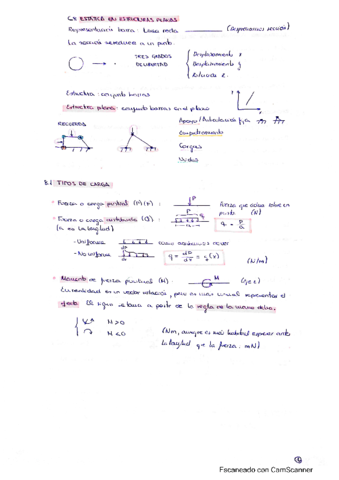 6.1 ESTÁTICA EN ESTRUCTURAS PLANAS
Representación barra: Línea recta (Despreciamos sección)
La sección se reduce a un punto.
TRES GRADOS DE LIBERTAD
Desplazamiento x
Desplazamiento y
Rotación
Estructura: conjunto barras
Estructura plana: conjunto barras en el plano
RECUERDOS
Apoyo/Articulación fija
Empotramiento
Cargas
Nudos
8.1 TIPOS DE CARGA
Fuerza o carga puntual (P) (V):
P
Fuerza que actúa sobre un punto (N)
Fuerza o carga distribuida (Q):
(a lo largo longitud)
P
q
a
q = P/a
- Uniforme
- No uniforme
q = dP/dx = q(x)
(N/m)
Momento de fuerza puntual (M):
M
En realidad es un vector rotación, pero es más usual representar el
efecto. El signo se basa a partir de la regla de la mano dcha.
M > 0
M < 0
(Nm, aunque es más habitual expresar antes
la longitud que la fuerza: mN)
Escaneado con CamScanner